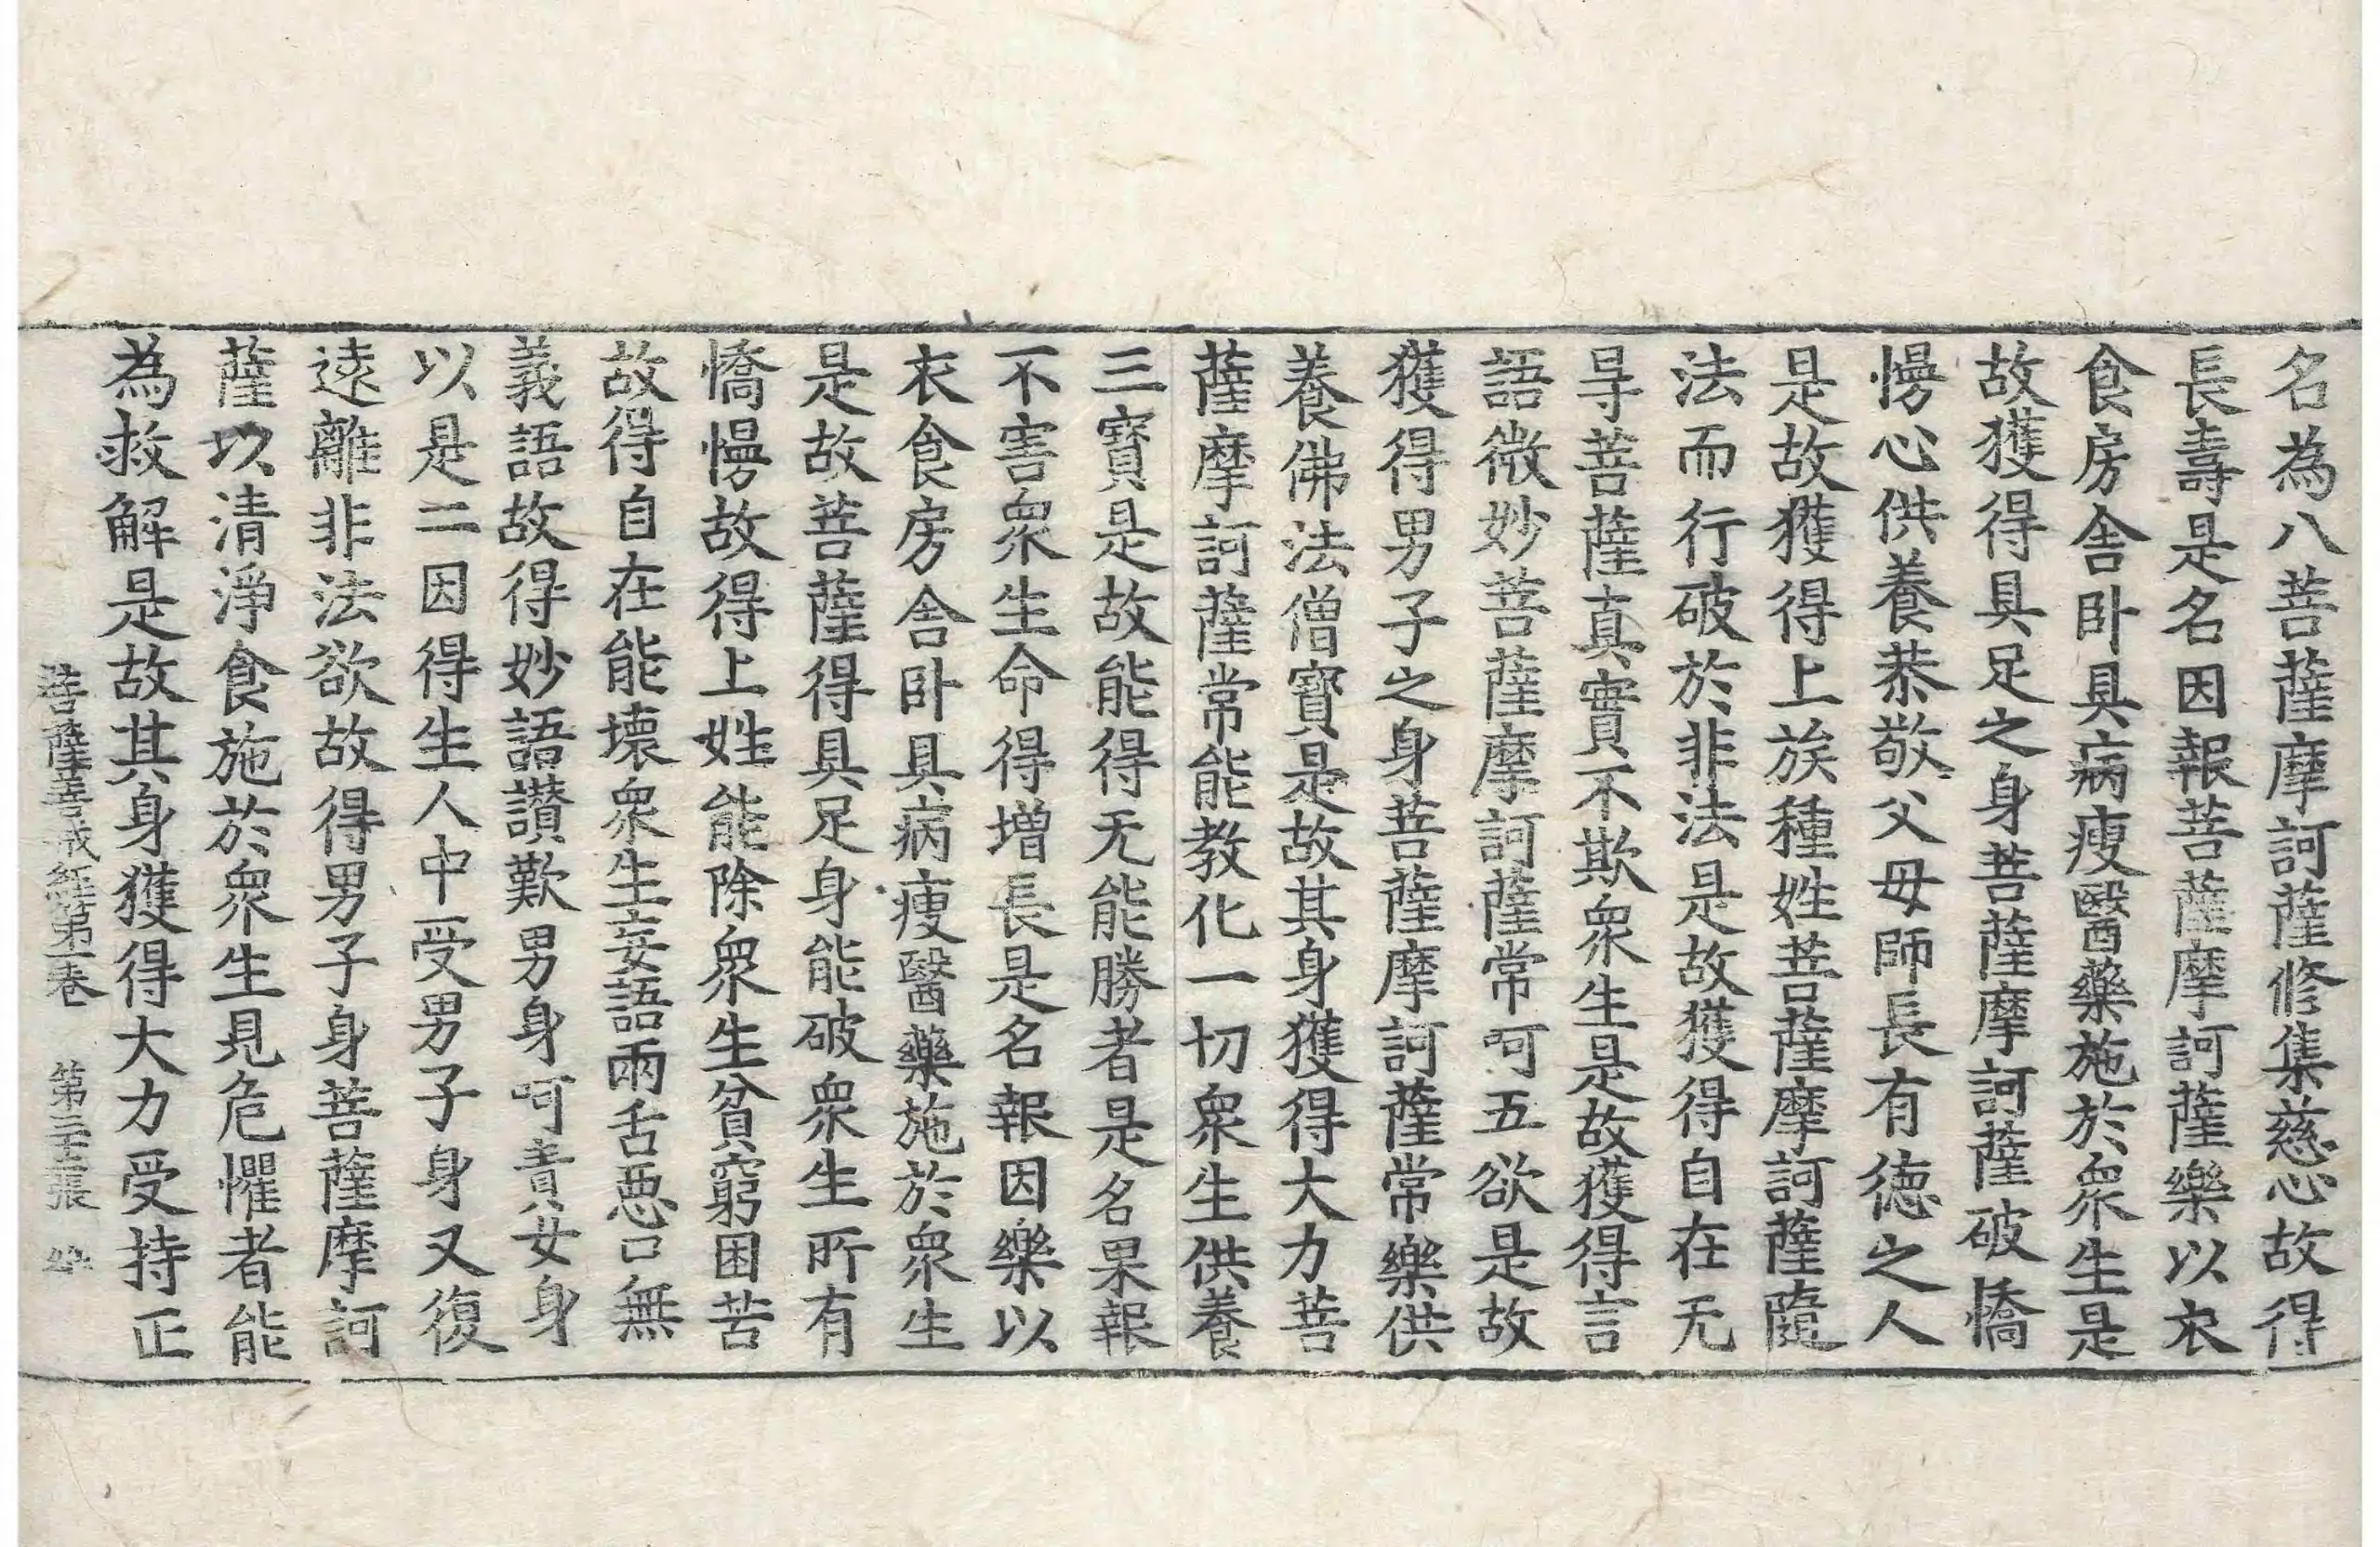 名為八菩薩摩訶薩修集慈心故得
長壽是名因報菩薩摩訶薩樂以衣
食房舍卧具病瘦醫藥施於衆生是
故獲得具足之身菩薩摩訶薩破憍
慢心供養恭敬父母師長有德之人
是故獲得上族種姓菩薩摩訶薩隨
法而行破於非法是故獲得自在无
㝵菩薩真實不欺衆生是故獲得言
語微妙菩薩摩訶薩常呵五欲是故
獲得男子之身菩薩摩訶薩常樂供
養佛法僧寶是故其身獲得大力菩
薩摩訶薩常能教化一切衆生供養
三寶是故能得无能勝者是名果報
不害衆生命得增長是名報因樂以
衣食房舍卧具病瘦醫藥施於衆生
是故菩薩得具足身能破衆生所有
憍慢故得上姓能除衆生貧窮困苦
故得自在能壞衆生妄語兩舌惡口無
義語故得妙語讚歎男身呵責女身
以是二因得生人中受男子身又復
遠離非法欲故得男子身菩薩摩訶
薩以清淨食施於衆生見危懼者能
為救解是故其身獲得大力受持正
菩薩善戒經第一卷 第二十張